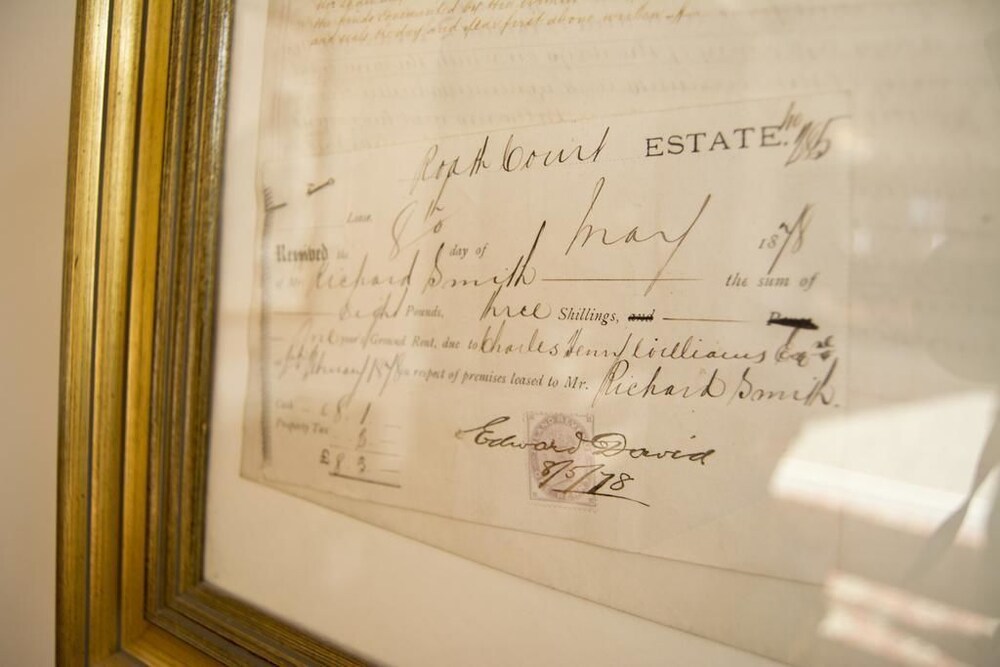 and year first above written
Roath Court ESTATE. No 185
Received the 8th day of May 1878
of Mr Richard Smith the sum of
Eight Pounds, three Shillings, and Pence
One year's Ground Rent, due to Charles Henry Williams Esqre
February 1878 in respect of premises leased to Mr. Richard Smith.
Cash £8 1
Property Tax 3
£ 8 3
Edward David
8/5/78